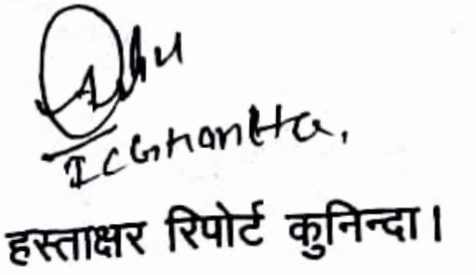 IC Ghantta,
हस्ताक्षर रिपोर्ट कुनिन्दा।